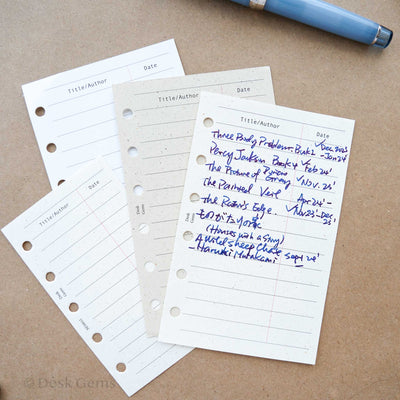 Title/Author Date
Title/Author Date
Title/Author Date
Three Body Problem. Book 2 ✓Dec 2023
-Jan 24
Percy Jackson Book 4 ✓Feb 24'
The Picture of Dorian Gray ✓Nov. 23'
The Painted Veil Apr 24'-
The Razor's Edge. ✓Nov 23'-Dec
23'
(Houses with a Story)
A Wild Sheep Chase Sept 24'
- Haruki Murakami
Title/Author Date
Desk Gems
Desk Gems
©Desk Gems